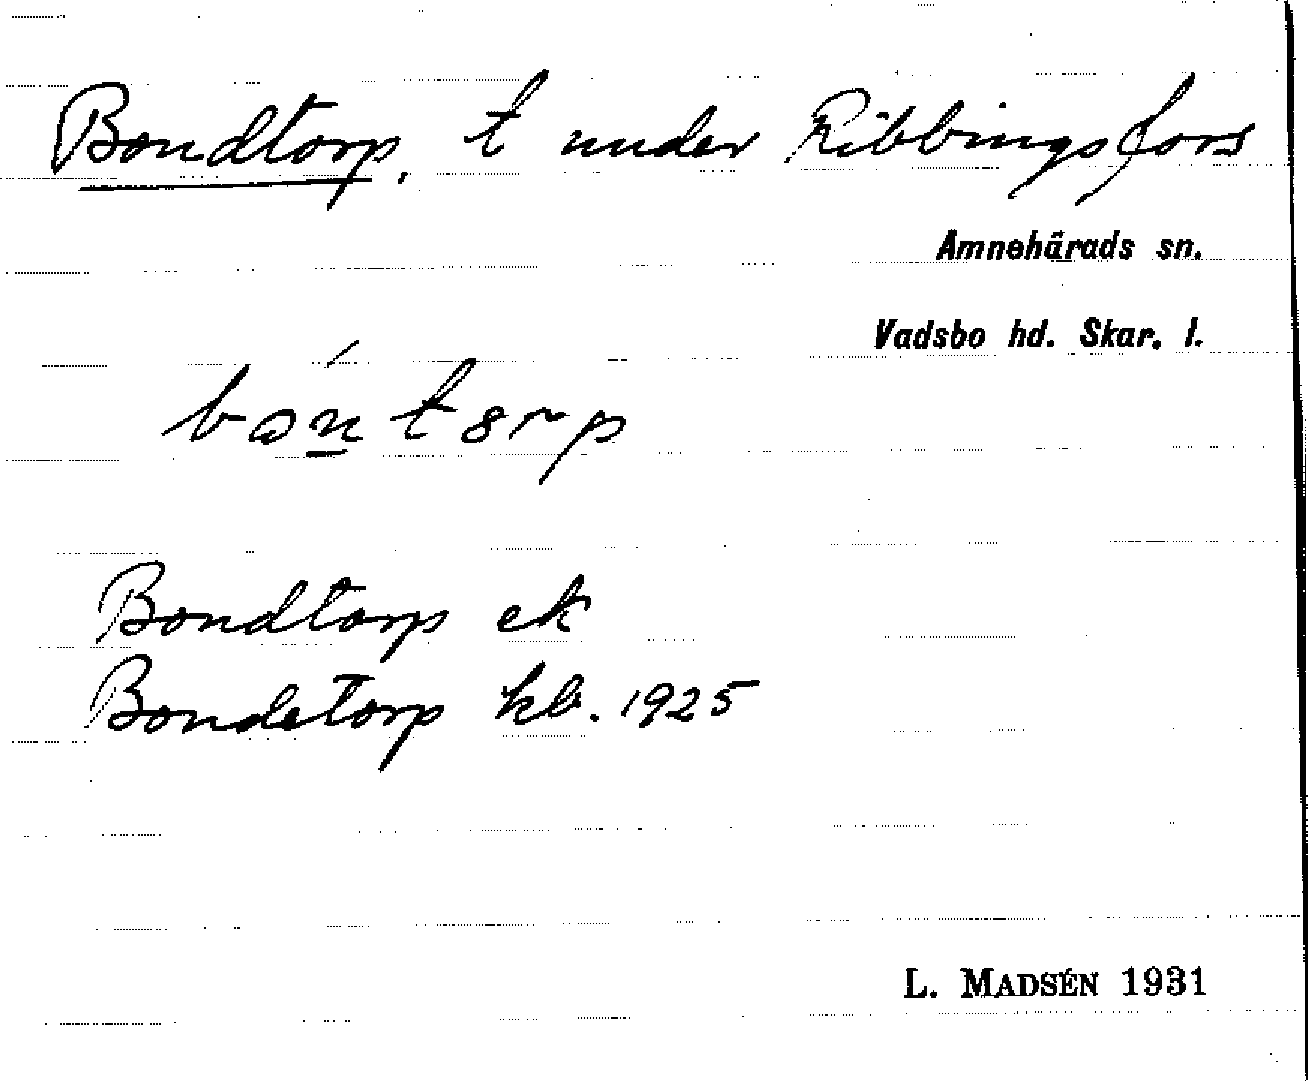 Bondtorp, t under Ribbingsfors
Amnehärads sn.
Vadsbo hd. Skar. l.
bɷń̲tɞrp
Bondtorp ek
Bondetorp kb. 1925
L. MADSÉN 1931